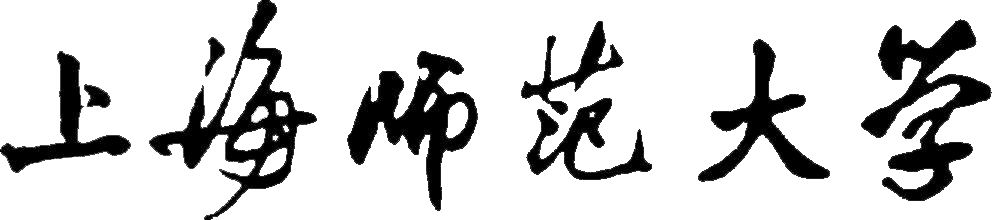 上海师范大学